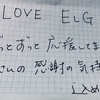 LOVE ELG
ずっとずっと応援してま
さんの感謝の気持
込め